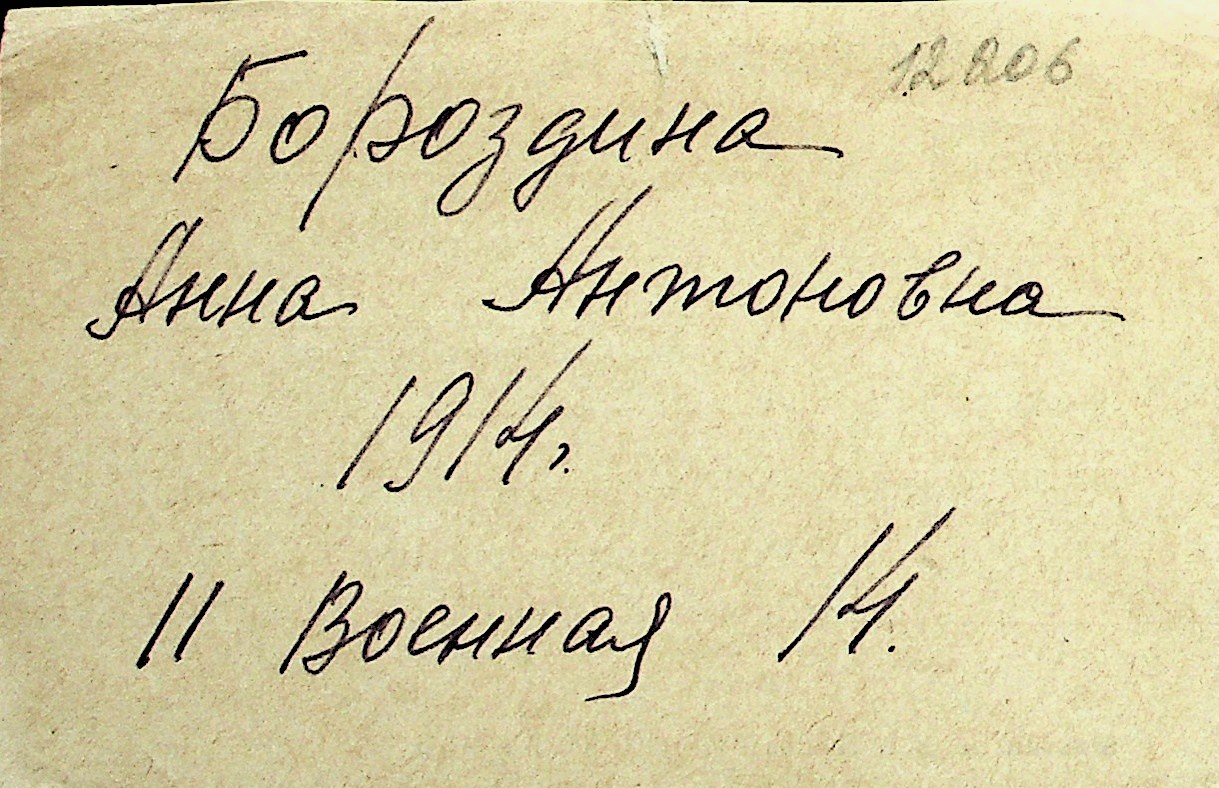 12206
Бороздина
Анна Антоновна
1914г.
11 Военная 14.